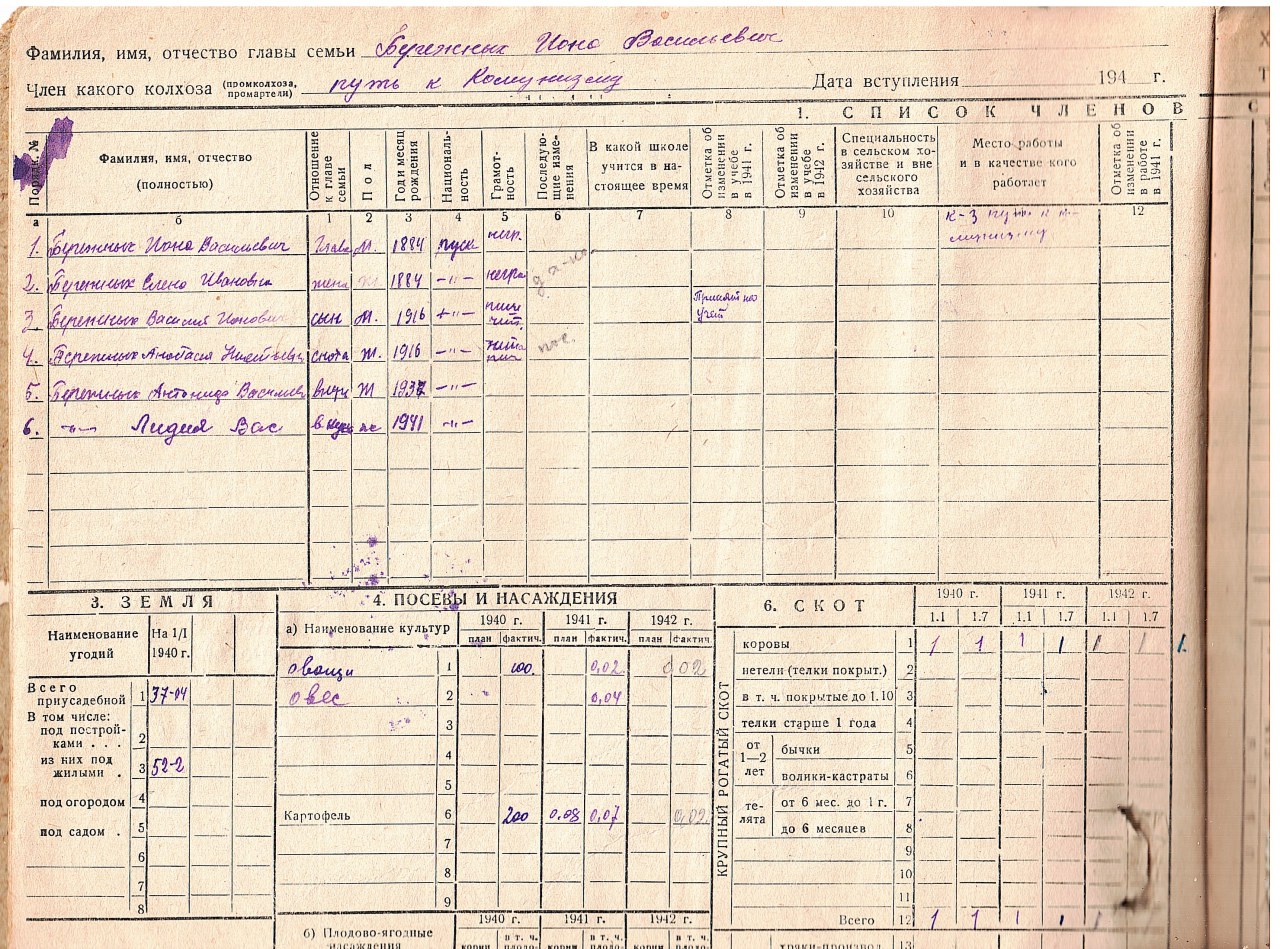 Фамилия, имя, отчество главы семьи Бережных Иона Васильевич
Член какого колхоза (промколхоза, промартели) путь к Комунизму Дата вступления 194 г.
1. СПИСОК ЧЛЕНОВ
Порядк. № Фамилия, имя, отчество (полностью) Отношение к главе семьи Пол Год и месяц рождения Националь-ность Грамот-ность Последую-щие изме-нения В какой школе учится в на-стоящее время Отметка об изменении в учебе в 1941 г. Отметка об изменении в учебе в 1942 г. Специальность в сельском хо-зяйстве и вне сельского хозяйства Место работы и в качестве кого работает Отметка об изменении в работе в 1941 г.
а б 1 2 3 4 5 6 7 8 9 10 12
к-з путь к к-
1. Бережных Иона Васильевич Глава М. 1884 руск негр.
2. Бережных Елена Ивановна жена 1884 -"- негра
3. Бережных Василий Ионович сын М. 1916 -"- Принят на учет
4. Бережных Анастасия снoха Ж. 1916 -"-
5. Бережных Антонида Василев внуч Ж 1937 -"-
6. -"- Лидия Вас внучь 1941 -"-
3. ЗЕМЛЯ
Наименование угодий На 1/I 1940 г.
Всего приусадебной 1 37-04
В том числе:
под построй-ками . . . 2
из них под жилыми . 3 52-2
под огородом 4
под садом . 5
6
7
8
4. ПОСЕВЫ И НАСАЖДЕНИЯ
а) Наименование культур 1940 г. 1941 г. 1942 г.
план фактич. план фактич. план фактич.
овощи 1 100. 0,02 0,02
овес 2 0,04
3
4
5
Картофель 6 200 0,08 0,07 0,02
7
8
9
1940 г. 1941 г. 1942 г.
б) Плодово-ягодные насаждения корни в т. ч. плодо- корни в т. ч. плодо- корни в т. ч. плодо-
6. СКОТ
1940 г. 1941 г. 1942 г.
1.1 1.7 1.1 1.7 1.1 1.7
КРУПНЫЙ РОГАТЫЙ СКОТ
коровы 1 1 1 1 1 1 1 1.
нетели (телки покрыт.) 2
в т. ч. покрытые до 1.10 3
телки старше 1 года 4
от 1—2 лет бычки 5
волики-кастраты 6
те-лята от 6 мес. до 1 г. 7
до 6 месяцев 8
9
10
11
Всего 12 1 1 1 1 1 1
13